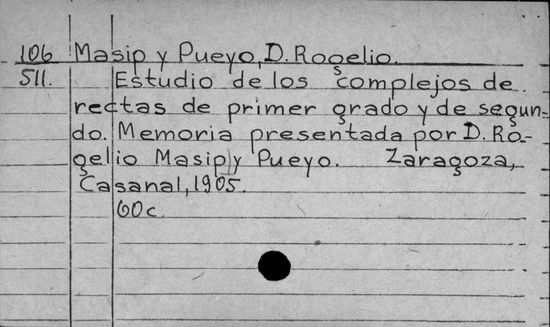 106 Masip y Pueyo, D. Rogelio.
511. Estudio de los complejos de
rectas de primer grado y de segun-
do. Memoria presentada por D. Ro-
gelio Masip y Pueyo. Zaragoza,
Casanal, 1905.
60 c.